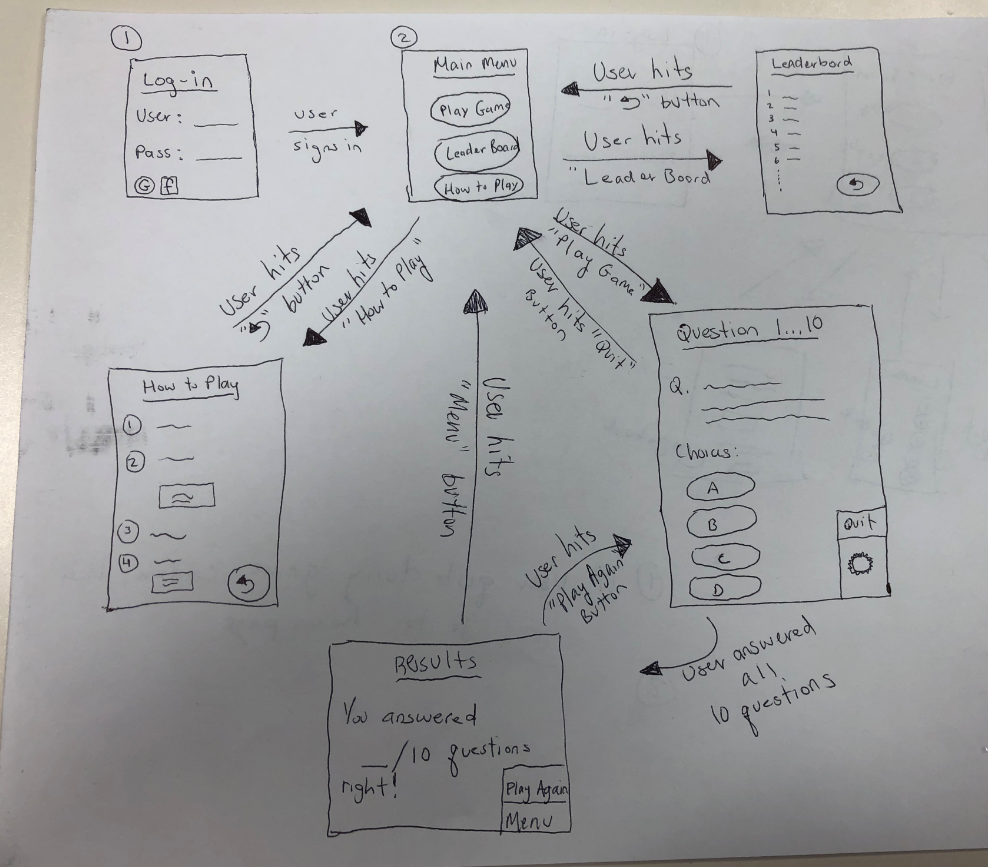 1
Log-in
User:
Pass:
G f
User
signs in
2
Main Menu
Play Game
Leader Board
How to Play
User hits
"⮌" button
User hits
"Leader Board
Leaderbord
1
2
3
4
5
6
User hits
"⮌" button
User hits
"How to Play"
User hits
"Play Game"
User hits "Quit"
Button
How to Play
1
2
3
4
User hits
"Menu" button
Question 1...10
Q.
Choices:
A
B
C
D
Quit
User hits
"Play Again"
Button
User answered
all
10 questions
Results
You answered
__/10 questions
right!
Play Again
Menu